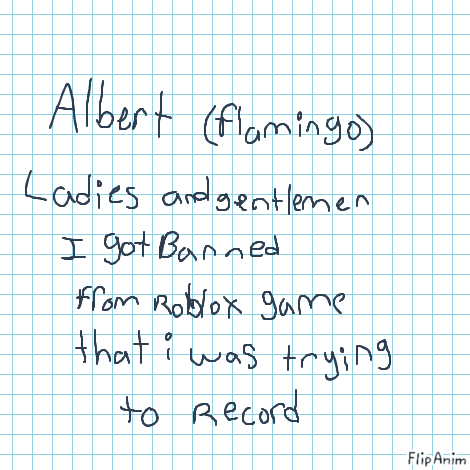 Albert (flamingo)
Ladies and gentlemen
I got Banned
from Roblox game
that i was trying
to Record
FlipAnim